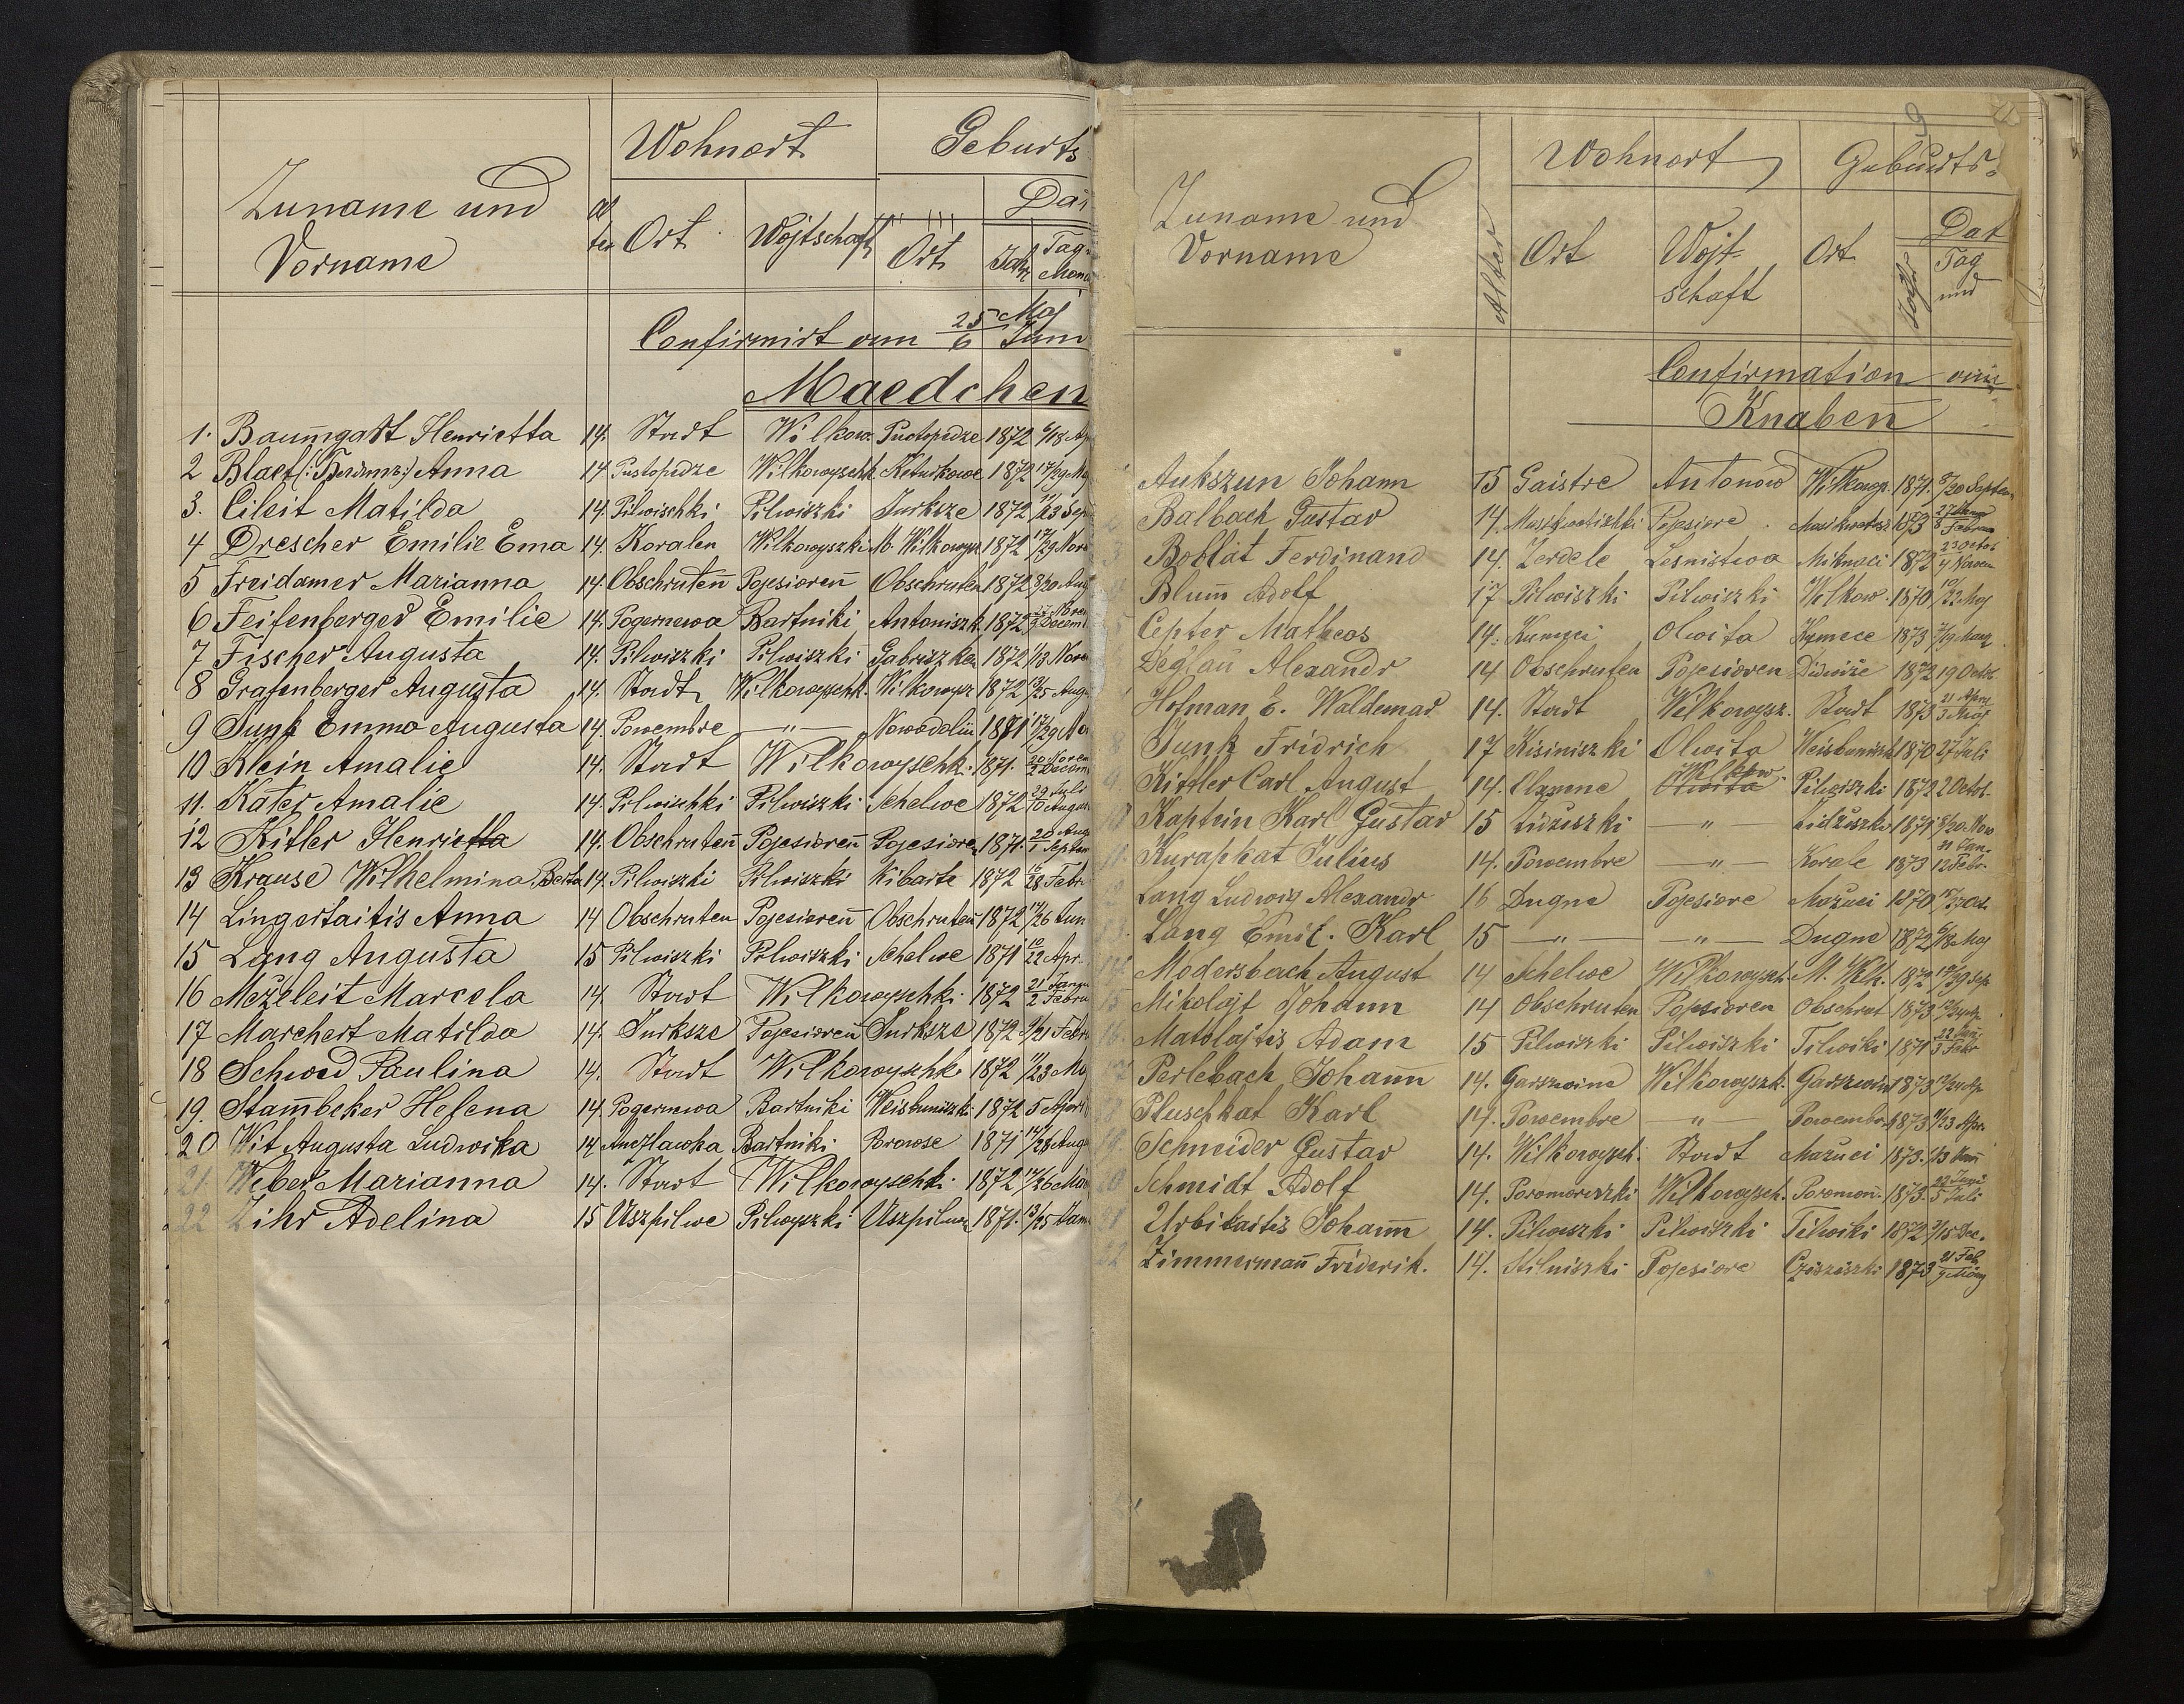 Zuname und Vorname Alter Wohnort Geburts
Ort Wojtschaft Ort Jahr Tag Mona
Confirmirt am 25/6 Maj Juni
Maedchen
1. Baumgart Henrietta 14. Stadt Wilkow. Pustopedze 1872 6/18 Ap
2 Blaet Anna 14 Pustopedze Wilkowyschk Keturkowe 1872 17/29 Ma
3. Cileit Matilda 14. Pilwischki Pilwiszki Jurksze 1872 11/23 Sep
4 Drescher Emilie Ema 14. Koralen Wilkowyszki M. Wilkowysz 1872 17/29 Nov
5 Freidamer Marianna 14 Obschruten Pojesioren Obschruten 1872 8/20 Aug
6 Feifenberger Emilie 14. Pogernewa Bartniki Antoniszk 1872 Novem Decem
7 Fischer Augusta 14. Pilwiszki Pilwiszki Gabriszken 1872 1/13 Nove
8 Grafenberger Augusta 14. Stadt Wilkowyschk. Wilkowysz 1872 13/25 Augu
9 Junk Emma Augusta 14. Powembre —"— Nowodolin 1871 17/29 No
10 Klein Amalie 14. Stadt Wilkowyschk. 1871. 20 Novem 2 Decem
11. Kater Amalie 14. Pilwischki Pilwiszki Schelwe 1872 29 Juli 10 August
12 Kitler Henrietta 14. Obschruten Pojesioren Pojesioren 1871. 20 Aug 1 Septem
13 Krause Wilhelmina Berta 14. Pilwiszki Pilwiszki Kibarte 1872 16/28 Febr
14 Lingertaitis Anna 14 Obschruten Pojesioren Obschruten 1872 14/26 Jun
15 Lang Augusta 15 Pilwiszki Pilwiszki Schelwe 1871 10/22 Apr.
16 Meželeit Marcela 14. Stadt Wilkowyschki. 1872 21 Janua 2 Februa
17 Marchert Matilda 14. Jurksze Pojesioren Jurksze 1872 9/21 Febr
18 Schwed Paulina 14. Stadt Wilkowyschk. 1872 11/23 Ma
19. Stambeker Helena 14. Pogernewa Bartniki Weisbuniszki 1872 5 April
20 Wit Augusta Ludwika 14 Anczlawka Bartniki Borowse 1871 14/26 Aug
21 Weber Marianna 14. Stadt Wilkowyschki 1872 14/26 Mär
22 Zihr Adelina 15 Uszpilwe Pilwyszki Uszpilwe 1871. 13/25 Jan
9
Zuname und Vorname Alter Wohnort Geburts-
Ort Wojt-schaft Ort Jahr Dat Tag und
Confirmation am
Knaben
Aukszun Johann 15 Gaistre Antonow Wilkowys. 1871. 8/20 Septem
2 Balbach Gustav 14. Pojesiore 1873 27 Janua 8 Februa
3 Boblat Ferdinand 14. Zerdele Lesnistwa Miknaci 1872 23 Octob 4 Novem
4 Blum Adolf 17 Pilwiszki Pilwiszki Wilkow. 1870 10/22 Maj
5 Cepter Matheos 14. Kumeci Olwita Kymece 1873 7/19 März
Deglau Alexandr 14 Obschruten Pojesioren Didwiże 1872 19 Octob.
Hofman E. Waldemar 14. Stadt Wilkowysz. Stadt 1873 21 April 3 Maj
8 Junk Fridrich 17 Kisiniszki Olwita Weisbuniszk 1870 27 Juli
9. Kittler Carl August 14. Olxnene Wilkow. Olwita Pilwiszki 1872 2 Octob.
10 Kaptein Karl Gustav 15 Lidžiszki —"— Lidžiszki 1871 8/20 Nov
11. Kurapkat Julius 14. Powembre —"— Korale 1873 31 Jan. 12 Febr.
12 Lang Ludwig Alexandr 16 Dugne Pojesiore Mažuci 1870 15/27 Oct.
13. Lang Emil. Karl 15 —"— —"— Dugne 1872 6/18 Maj
14 Modersbach August 14 Schelwe Wilkowysch. M. Wilk. 1872 17/29 Sep
15 Mikolajt Johann 14 Obschruten Pojesioren Obschrut 1873
16. Matolajtis Adam 15 Pilwiszki Pilwiszki Tilwiki 1871 22 Jan. 3 Febr
17 Perlebach Johann 14. Garszwine Wilkowyszk. Garszwine 1873 12/24 Ap
18 Pluschkat Karl 14. Powembre —"— Powembr. 1873 11/23 Apr.
19. Schneider Gustav 14. Wilkowysch. Stadt Mažuci 1873. 1/13
20 Schmidt Adolf 14. Poromoriszki Wilkowysch. Poromori. 1873. 23 Juni 5 Juli
21 Urbitaitis Johann 14. Pilwiszki Pilwiszki Tilwiki 1872 3/15 Dec.
22 Zimmermann Friderik. 14. Stilniszki Pojesiore Cziżiszki 1873 21 Feb. 9 März